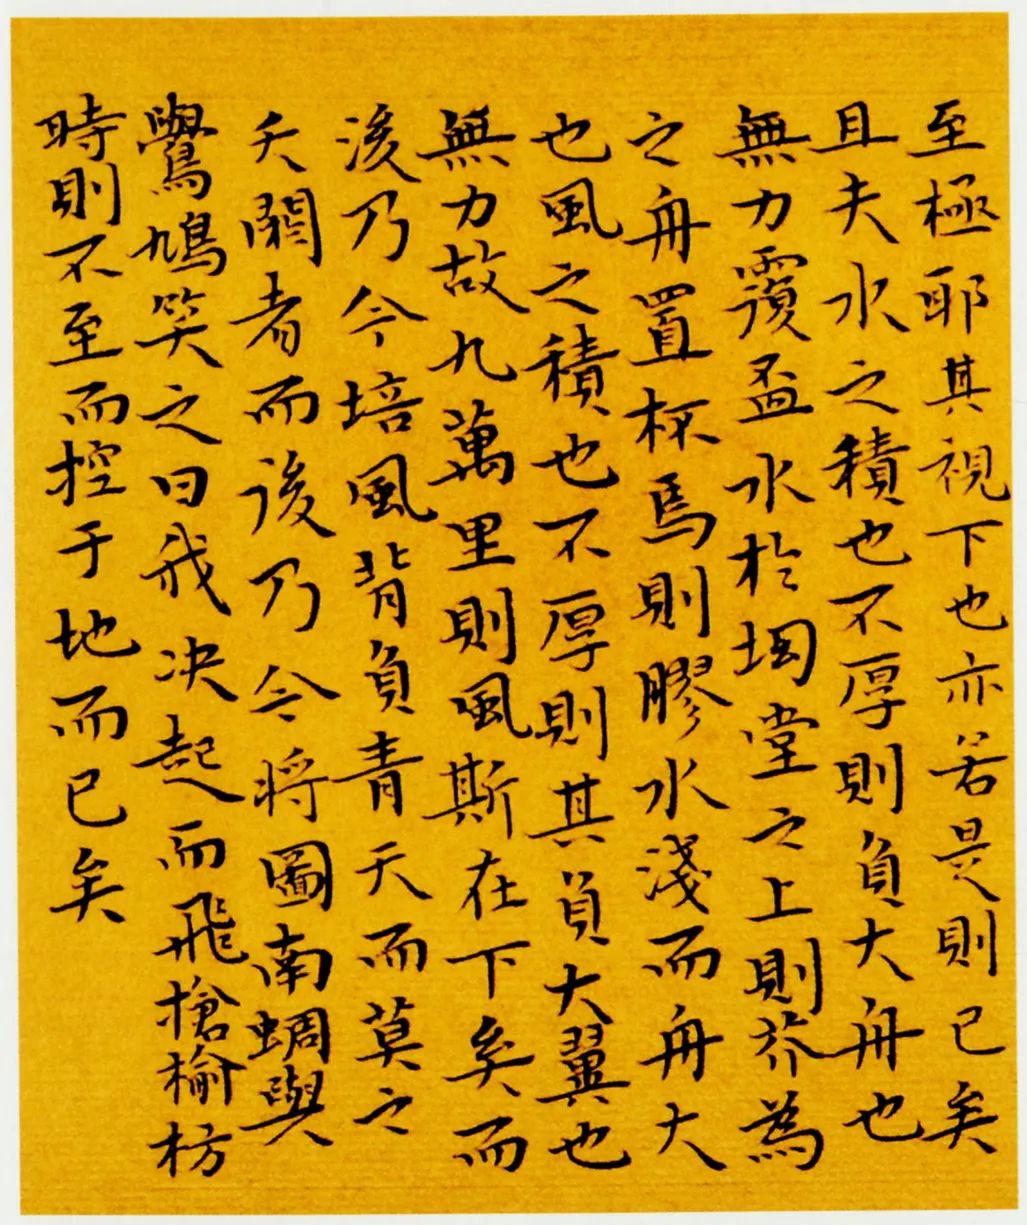 至極耶其視下也亦若是則已矣
且夫水之積也不厚則負大舟也
無力覆盃水於坳堂之上則芥為
之舟置杯焉則膠水淺而舟大
也風之積也不厚則其負大翼也
無力故九萬里則風斯在下矣而
後乃今培風背負青天而莫之
夭閼者而後乃今将圖南蜩與
鷽鳩笑之曰我决起而飛搶榆枋
時則不至而控于地而已矣